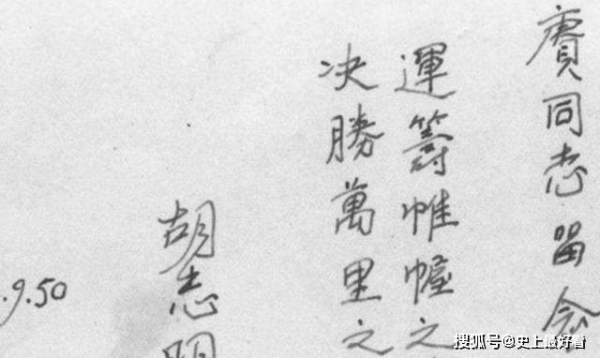 賡同志留念
運籌帷幄之
决勝萬里之
胡志明
.9.50
搜狐号@史上最好看